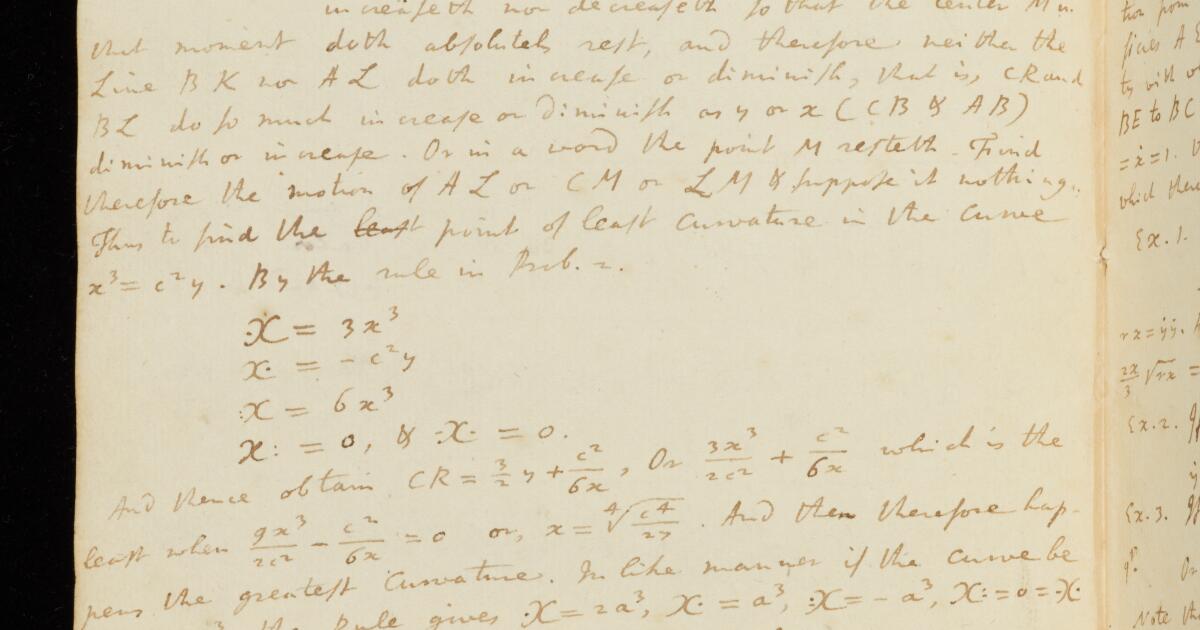 increaseth nor decreaseth so that the center M in
that moment doth absolutely rest, and therefore neither the
Line BK nor AL doth increase or diminish, that is, CR and
BL do so much increase or diminish as y or x (CB & AB)
diminish or increase. Or in a word the point M resteth. Find
therefore the motion of AL or CM or LM & suppose it nothing.
Thus to find the least point of least curvature in the curve
x³ = c²y. By the rule in Prob. 2.
·X = 3x³
X· = -c²y
:X = 6x³
X: = 0, & ·X· = 0.
And thence obtain CR = 3/2 y + c²/6x, Or 3x³/2c² + c²/6x which is the
least when 9x³/2c² - c²/6x = 0 or, x = ⁴√(c⁴/27). And then therefore hap-
pens the greatest Curvature. In like manner if the curve be
the Rule gives ·X = 2a³, X· = a³, :X = -a³, X: = 0 = ·X·
tion
fices A
ty with
BE to BC
= ẋ = 1.
which
Ex. 1.
rx = yy.
2x/3 √rx =
Ex. 2.
Ex. 3.
Or
Note